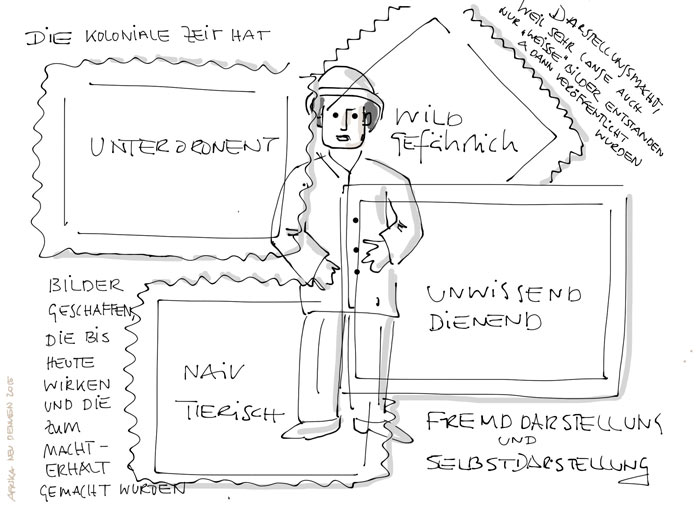 DIE KOLONIALE ZEIT HAT
DARSTELLUNGSMACHT,
WEIL SEHR LANGE AUCH
NUR „WEISSE“ BILDER ENTSTANDEN
& DANN VERÖFFENTLICHT
WURDEN
UNTERORDNEND
WILD
GEFÄHRLICH
UNWISSEND
DIENEND
BILDER
GESCHAFFEN,
DIE BIS
HEUTE
WIRKEN
UND DIE
ZUM
MACHT-
ERHALT
GEMACHT WURDEN
NAIV
TIERISCH
FREMDDARSTELLUNG
UND
SELBSTDARSTELLUNG
AFRIKA NEU DENKEN 2015